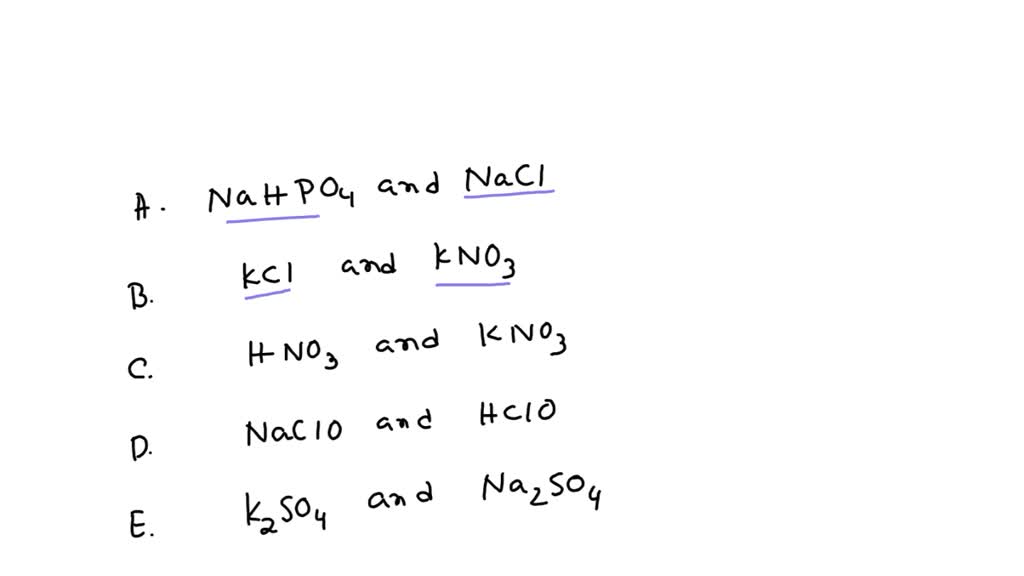 A. NaHPO4 and NaCl
B. KCl and KNO3
C. HNO3 and KNO3
D. NaClO and HClO
E. K2SO4 and Na2SO4